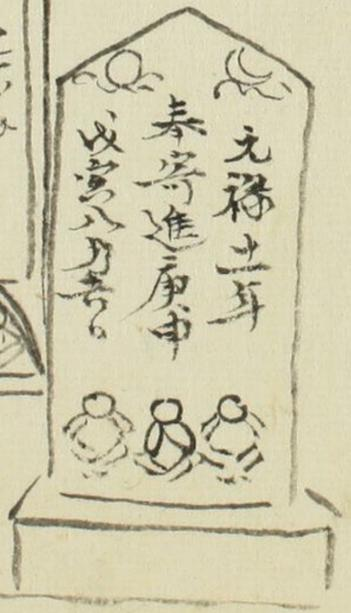 元禄十一年
奉寄進庚申
戊寅八月吉日